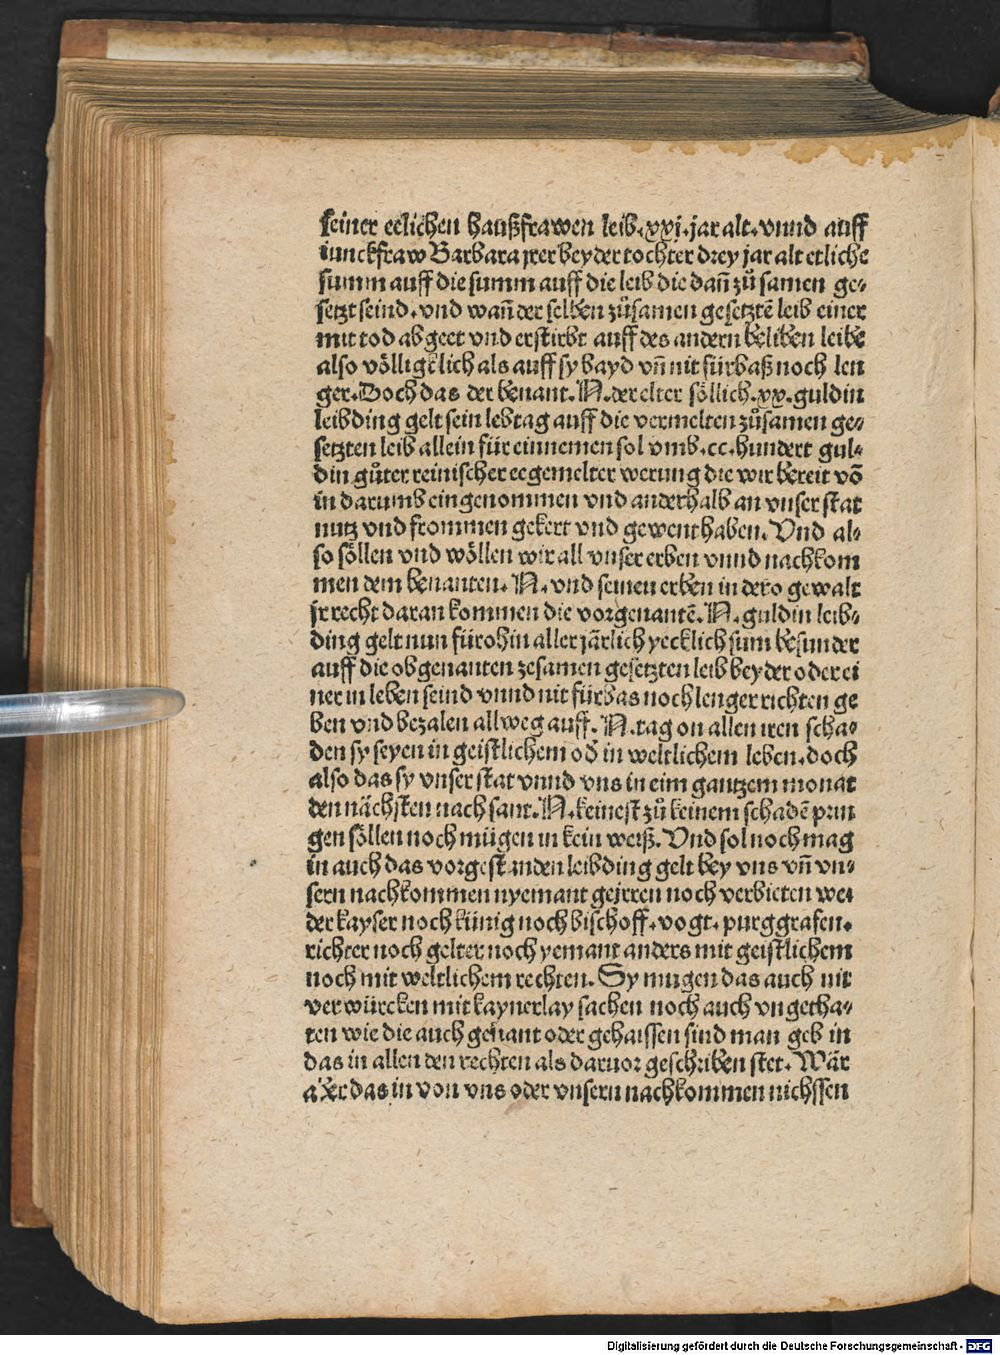 seiner eelichen haußfrawen leib.xxj.jar alt.vnnd auff
iunckfraw Barbara jrer beyder tochter drey jar alt etliche
summ auff die summ auff die leib die dañ zů samen ge⸗
setzt seind.vnd wañ der selben zůsamen gesetztē leib einer
mit tod abgeet vnd erstirbt auff des andern beliben leibe
also völligklich als auff sy bayd vñ nit fürbaß noch len
ger.Doch das der benant.N.der elter söllich.xx.guldin
leibding gelt sein lebtag auff die vermelten zůsamen ge⸗
setzten leib allein für einnemen sol vmb.cc.hundert gul⸗
din gůter reinischer eegemelter werung die wir bereit vō
in darumb eingenommen vnd anderhalb an vnser stat
nutz vnd frommen gekert vnd gewent haben. Vnd al⸗
so söllen vnd wöllen wir all vnser erben vnnd nachkom
men dem benanten. N. vnd seinen erben in dero gewalt
jr recht daran kommen die vorgenantē.N.guldin leib⸗
ding gelt nun fürohin aller järlich yecklich sum besunder
auff die obgenanten zesamen gesetzten leib beyder oder ei
ner in leben seind vnnd nit fürbas noch lenger richten ge
ben vnd bezalen allweg auff. N.tag on allen iren scha⸗
den sy seyen in geistlichem od̄ in weltlichem leben.doch
also das sy vnser stat vnnd vns in eim gantzem monat
den nächsten nach sant.N.keinest zů keinem schadē prin
gen söllen noch mügen in kein weiß. Vnd sol noch mag
in auch das vorgestanden leibding gelt bey vns vñ vn⸗
sern nachkommen nyemant gejrren noch verbieten we⸗
der kayser noch künig noch bischoff.vogt.purggrafen.
richter noch gelter noch yemant anders mit geistlichem
noch mit weltlichem rechten. Sy mugen das auch nit
verwürcken mit kaynerlay sachen noch auch vngetha⸗
ten wie die auch genant oder gehaissen sind man geb in
das in allen den rechten als daruor geschriben stet. Wär
aber das in von vns oder vnsern nachkommen nichssen
Digitalisierung gefördert durch die Deutsche Forschungsgemeinschaft - DFG